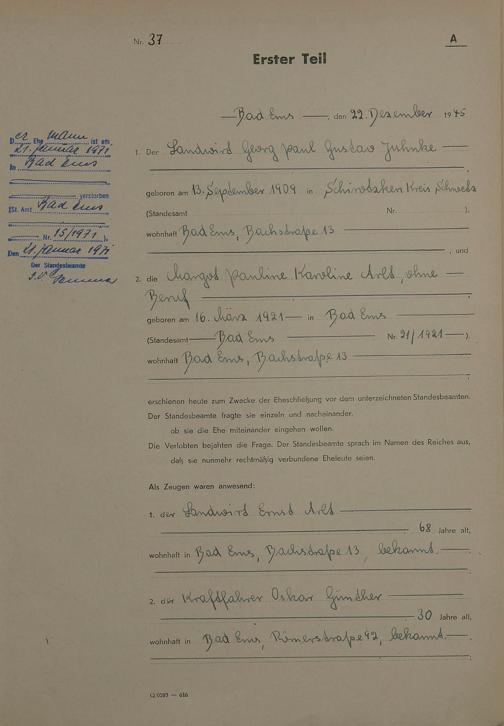 Nr. 37
A
Erster Teil
Bad Ems, den 22. Dezember 1945
1. Der Landwirt Georg Paul Gustav Juhnke
geboren am 13. September 1909 in Schirotzken Kreis Schwetz
(Standesamt Nr. ).
wohnhaft Bad Ems, Bachstraße 13
, und
2. die Margot Pauline Karoline Arlt, ohne
Beruf
geboren am 16. März 1921 in Bad Ems
(Standesamt Bad Ems Nr. 21/1921 ).
wohnhaft Bad Ems, Bachstraße 13
erschienen heute zum Zwecke der Eheschließung vor dem unterzeichneten Standesbeamten.
Der Standesbeamte fragte sie einzeln und nacheinander,
ob sie die Ehe miteinander eingehen wollen.
Die Verlobten bejahten die Frage. Der Standesbeamte sprach im Namen des Reiches aus,
daß sie nunmehr rechtmäßig verbundene Eheleute seien.
Als Zeugen waren anwesend:
1. der Landwirt Ernst Arlt
68 Jahre alt,
wohnhaft in Bad Ems, Bachstraße 13, bekannt.
2. der Kraftfahrer Oskar Günther
30 Jahre alt,
wohnhaft in Bad Ems, Römerstraße 42, bekannt.
Der Ehemann ist am
21. Januar 1971
in Bad Ems
verstorben
(St. Amt Bad Ems
Nr. 15/1971).
Den 21. Januar 1971
Der Standesbeamte